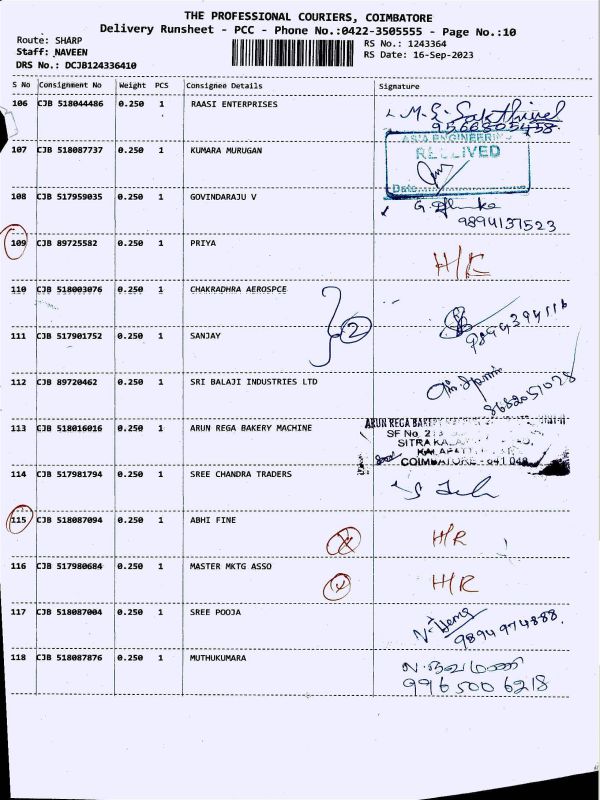 THE PROFESSIONAL COURIERS, COIMBATORE
Delivery Runsheet - PCC - Phone No.:0422-3505555 - Page No.:10
Route: SHARP
RS No.: 1243364
Staff: NAVEEN
RS Date: 16-Sep-2023
DRS No.: DCJB124336410
S No Consignment No Weight PCS Consignee Details Signature
106 CJB 518044486 0.250 1 RAASI ENTERPRISES M.S. Sakthivel
9566805458
ASIA ENGINEERING
107 CJB 518087737 0.250 1 KUMARA MURUGAN RECEIVED
Date
108 CJB 517959035 0.250 1 GOVINDARAJU V G.
9894137523
109 CJB 89725582 0.250 1 PRIYA H/R
110 CJB 518003076 0.250 1 CHAKRADHRA AEROSPCE
2
111 CJB 517901752 0.250 1 SANJAY 9894394516
112 CJB 89720462 0.250 1 SRI BALAJI INDUSTRIES LTD
8682051028
113 CJB 518016016 0.250 1 ARUN REGA BAKERY MACHINE ARUN REGA BAKERY
SF No
SITRA
COIMBATORE - 641 048
114 CJB 517981794 0.250 1 SREE CHANDRA TRADERS
115 CJB 518087094 0.250 1 ABHI FINE H/R
116 CJB 517980684 0.250 1 MASTER MKTG ASSO H/R
117 CJB 518087004 0.250 1 SREE POOJA N. Hema
9894974888
118 CJB 518087876 0.250 1 MUTHUKUMARA ந. நவமணி
9965006218